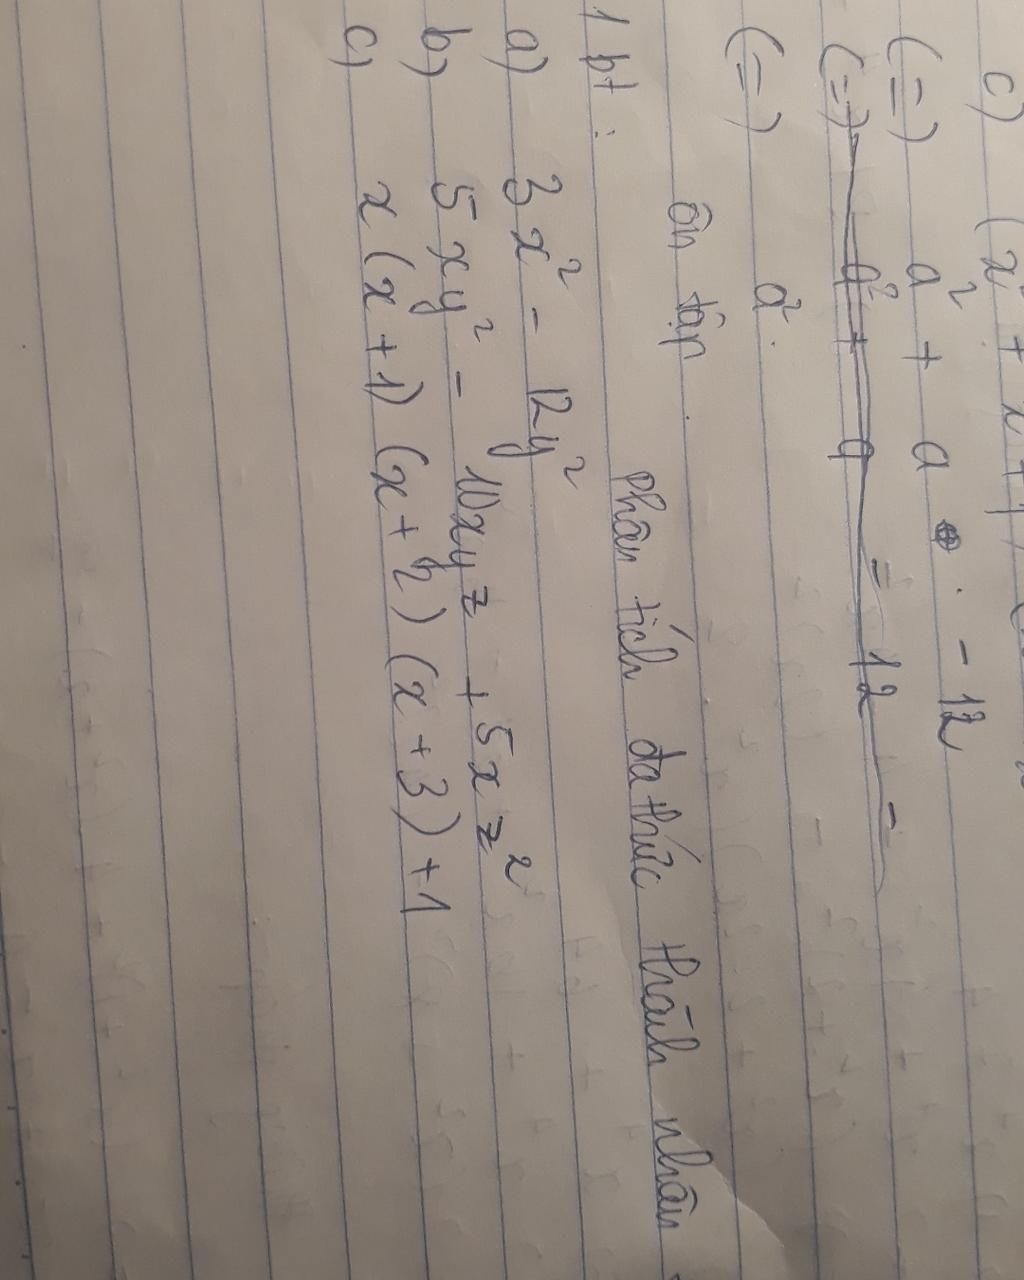 c) (x² + x + 1) (
(=) a² + a . - 12
(=) a² + a = 12 =
(=) a² .
ôn tập . phân tích đa thức thành nhân
1 bt :
a) 3x² - 12y²
b) 5xy² - 10xyz + 5xz²
c) x(x+1) (x+2) (x+3) +1